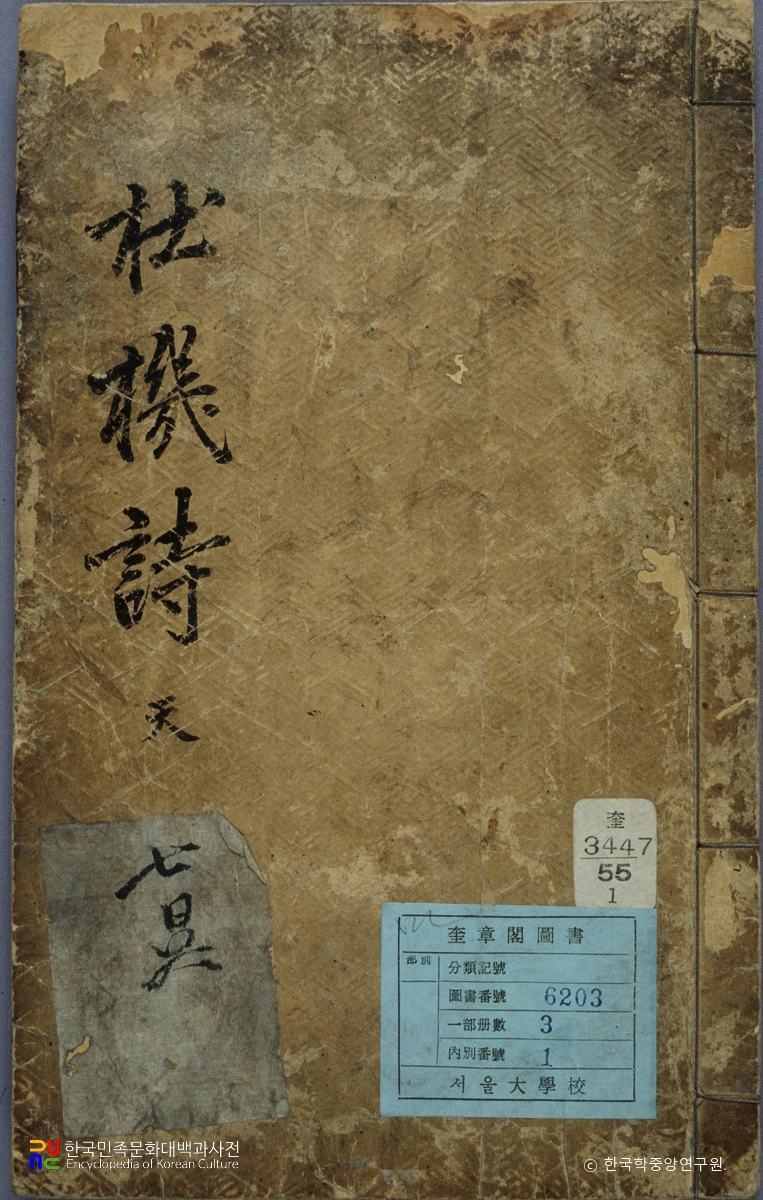 杜機詩 天
七
奎
3447
55
1
奎章閣圖書
部別
分類記號
圖書番號 6203
一部册數 3
內別番號 1
서울大學校
한국민족문화대백과사전
Encyclopedia of Korean Culture
© 한국학중앙연구원